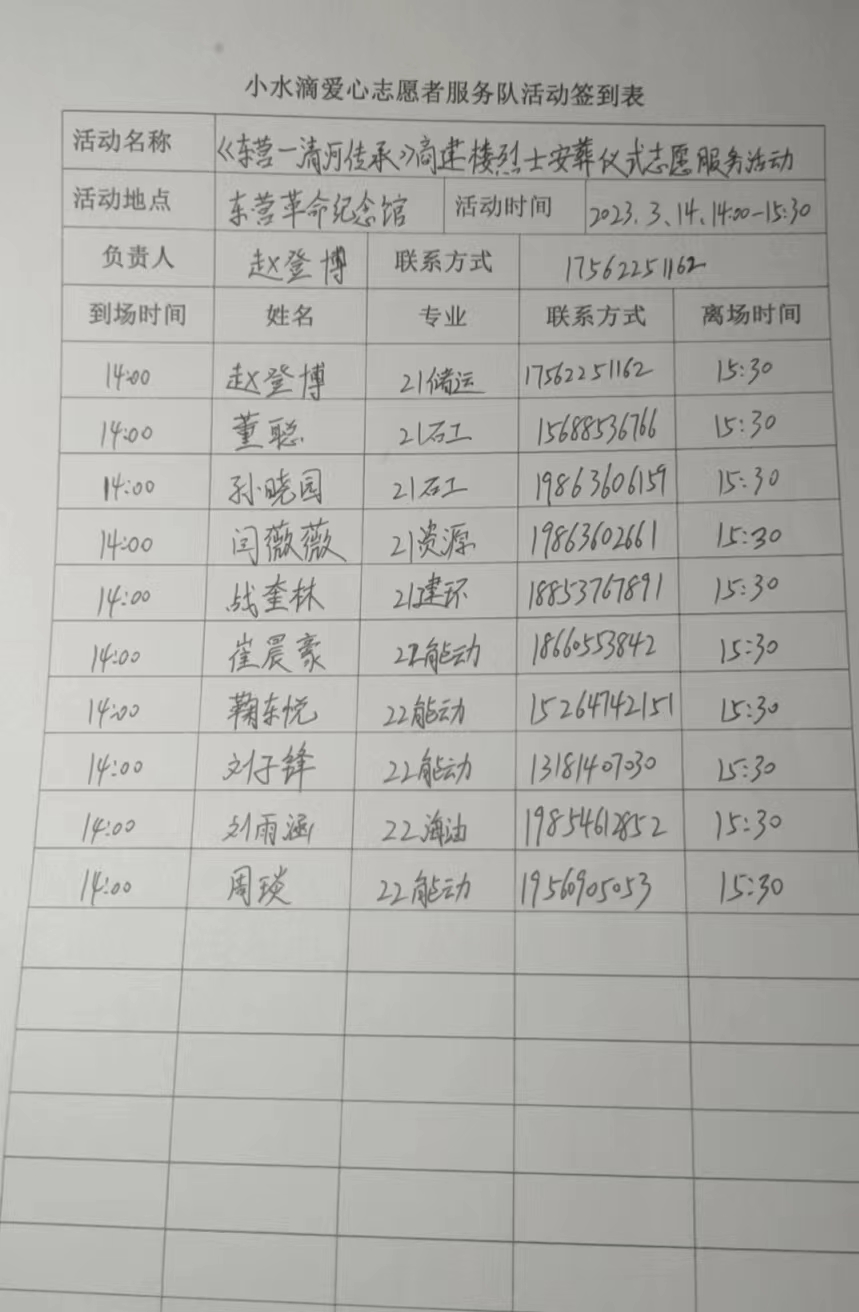 小水滴爱心志愿者服务队活动签到表
活动名称 《东营一清河传承》高建楼烈士安葬仪式志愿服务活动
活动地点 东营革命纪念馆 活动时间 2023.3、14、14:00-15:30
负责人 赵登博 联系方式 17562251162
到场时间 姓名 专业 联系方式 离场时间
14:00 赵登博 21储运 17562251162 15:30
14:00 董聪 21石工 15688536766 15:30
14:00 孙晓园 21石工 19863606159 15:30
14:00 闫薇薇 21资源 19863602661 15:30
14:00 战奎林 21建环 18853767891 15:30
14:00 崔晨豪 22能动 18660553842 15:30
14:00 鞠东悦 22能动 15264742151 15:30
14:00 刘子锋 22能动 13181407030 15:30
14:00 刘雨涵 22海油 19854612852 15:30
14:00 周琰 22能动 19560905053 15:30